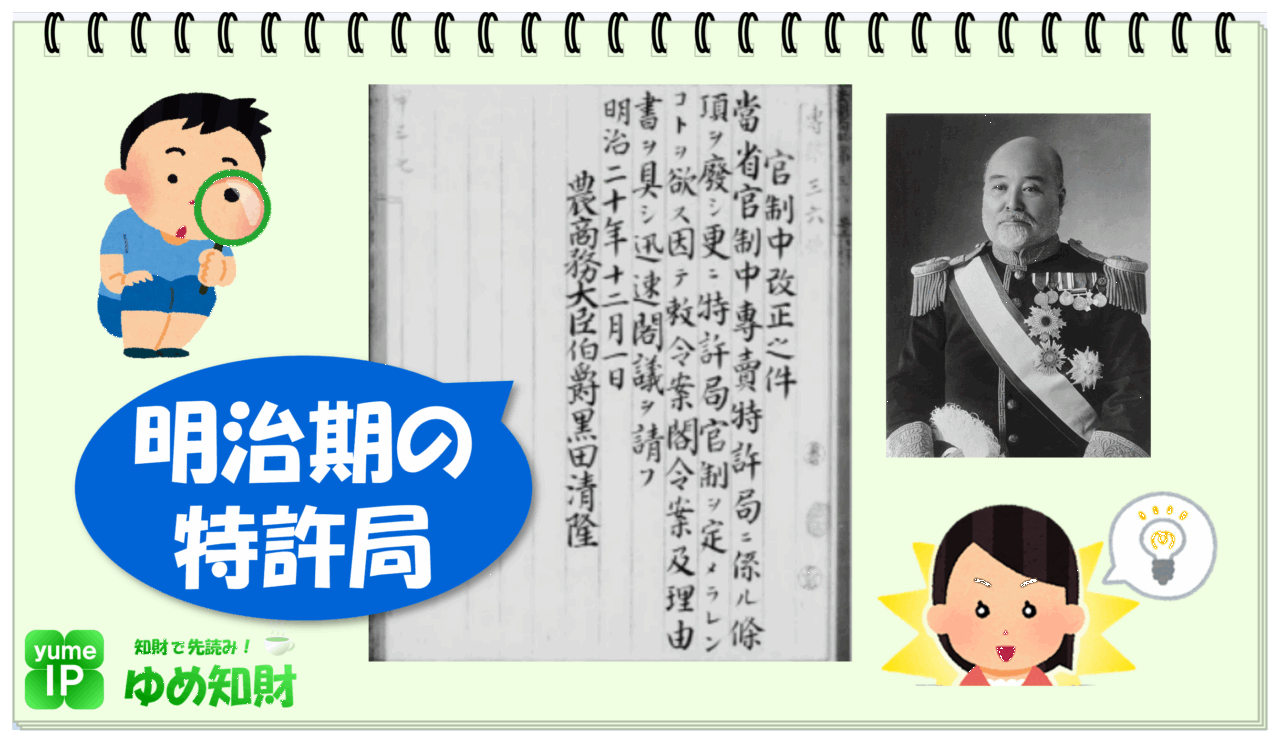 官制中改正之件
當省官制中專賣特許局ニ係ル條
項ヲ廢シ更ニ特許局官制ヲ定メラレン
コトヲ欲ス因テ敕令案閣令案及理由
書ヲ具シ迅速閣議ヲ請フ
明治二十年十二月一日
農商務大臣伯爵黒田清隆
明治期の
特許局
yume
IP
知財で先読み！
ゆめ知財